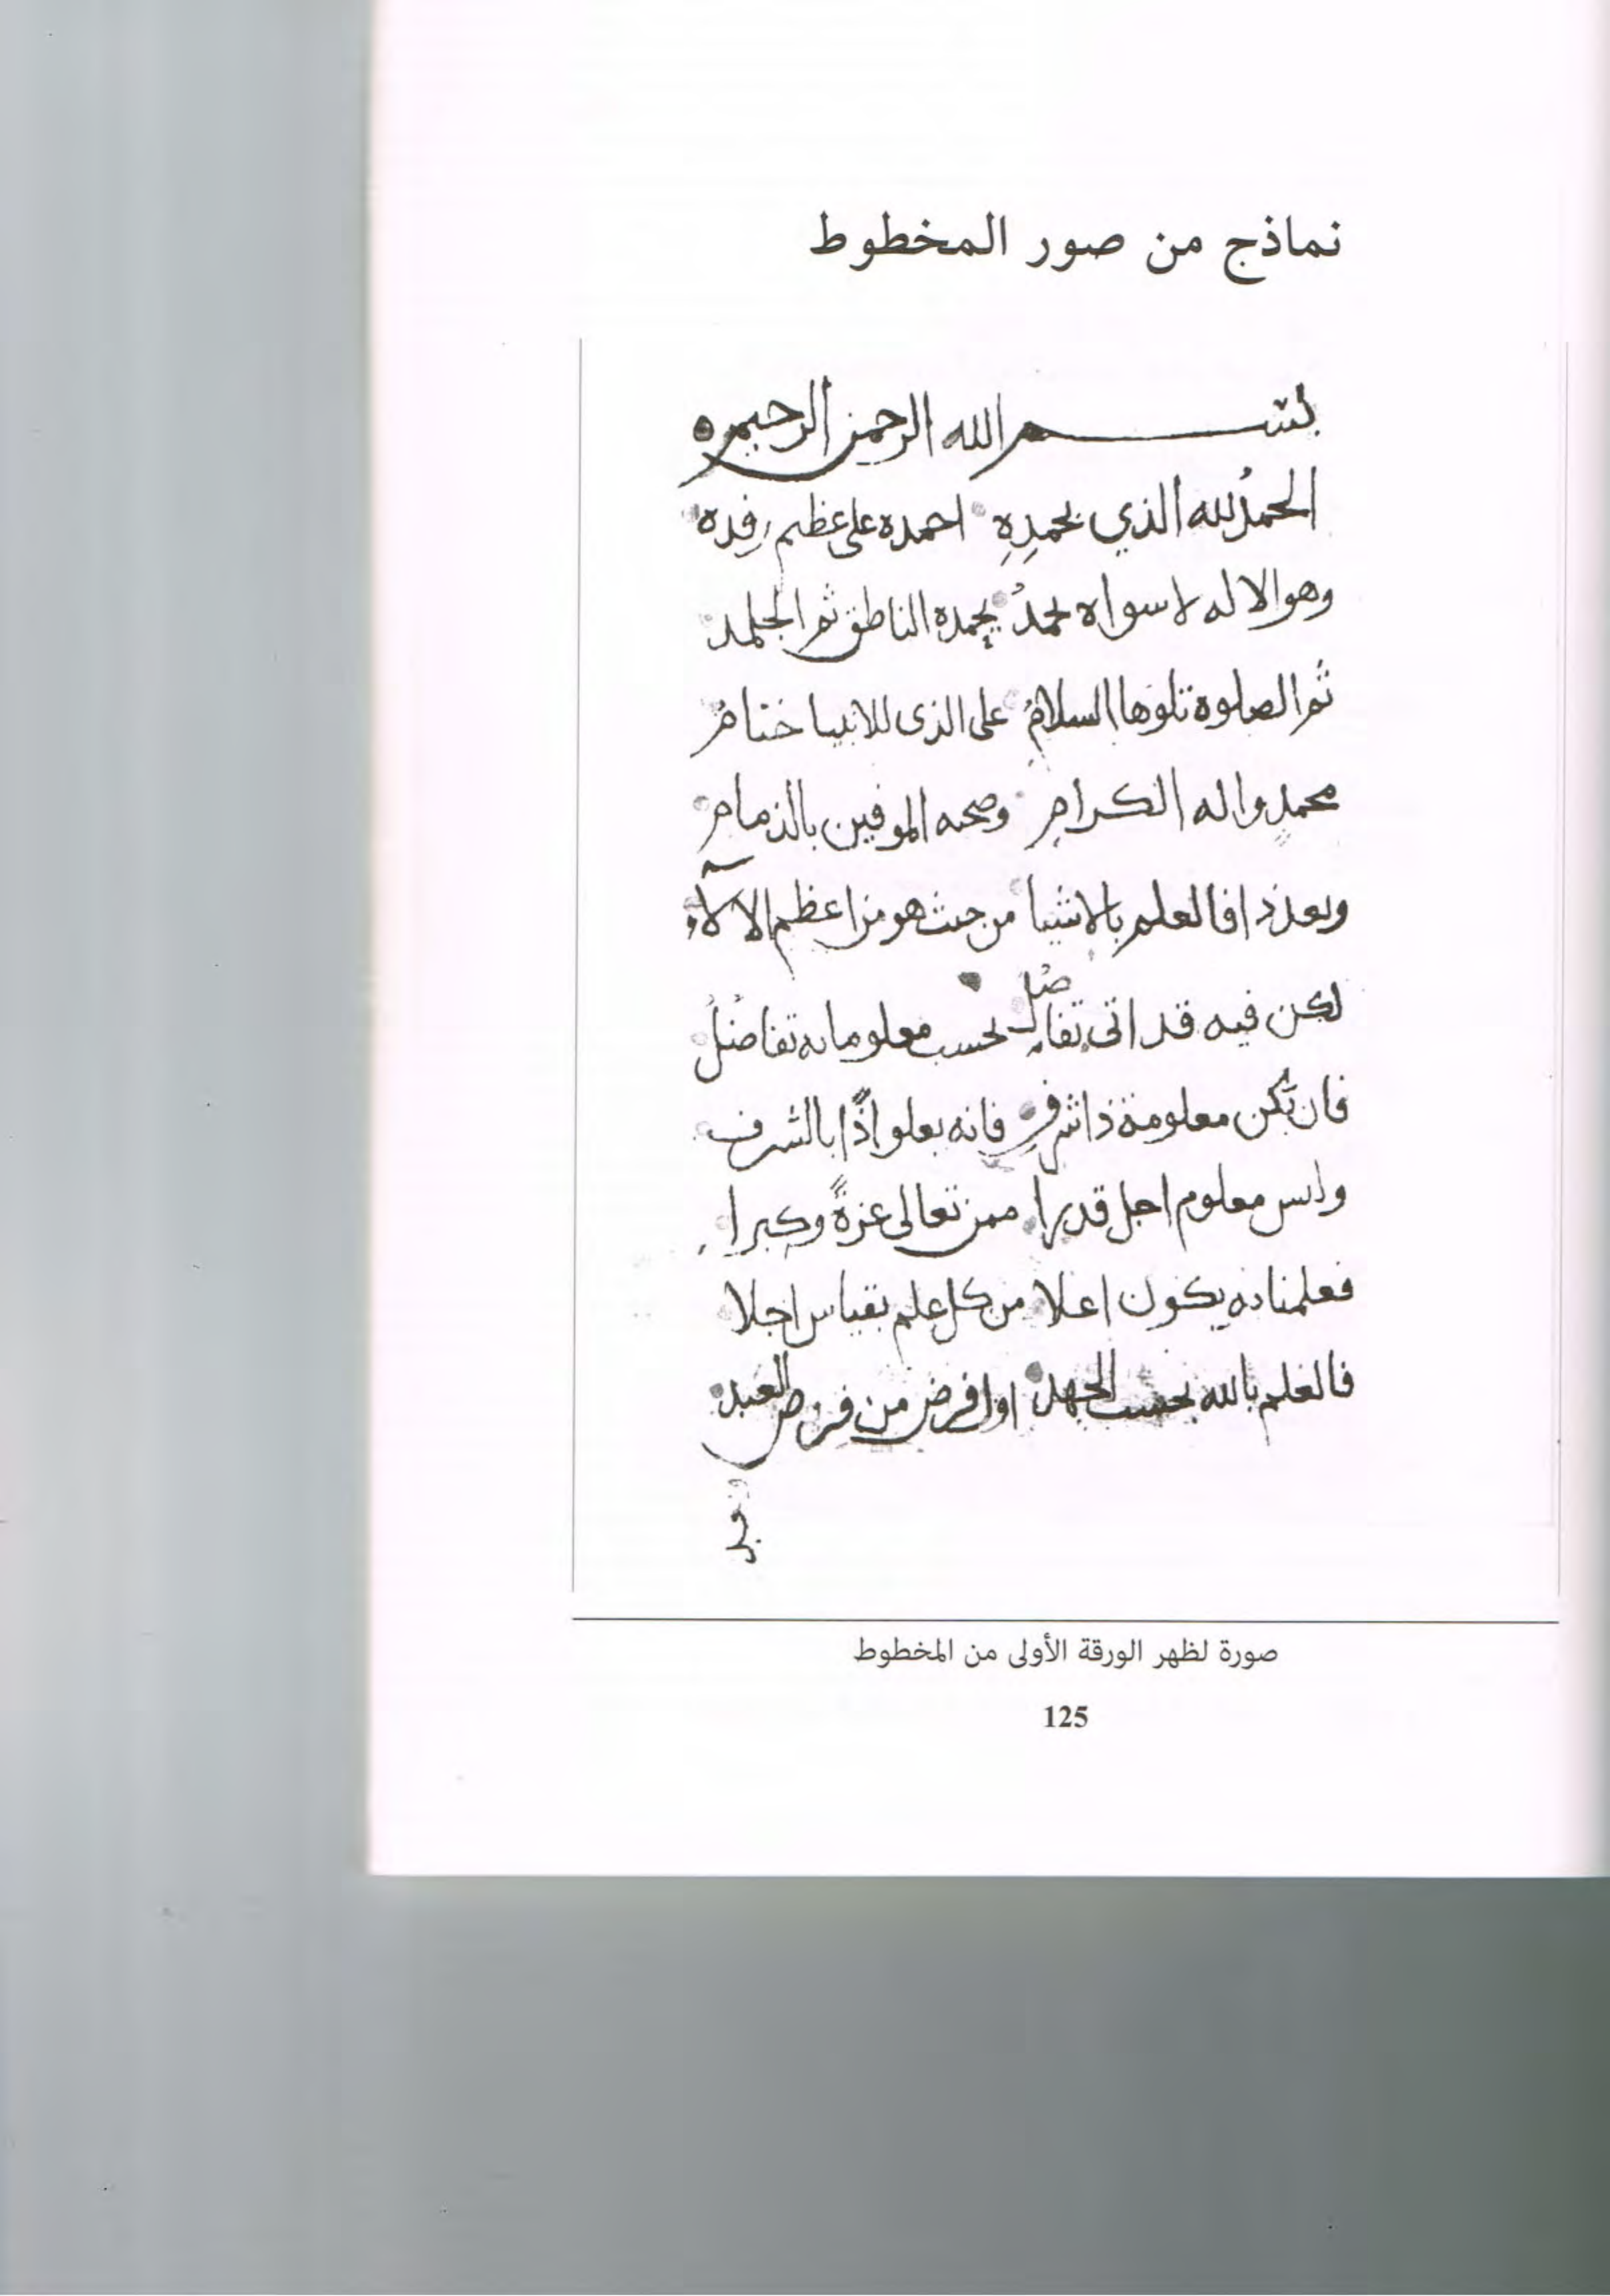 نماذج من صور المخطوط
بسم الله الرحمن الرحيم
الحمدُ لله الذي بحمدِهِ احمده على عظيم رِفده
وهو الاله لا سواه يحمدُ يحمده الناطق ثم الجلمد
ثم الصلوة تلوَها السلامُ على الذى للانبيا ختامُ
محمدٍ واله الكرامِ وصحبه الموفين بالذمام
وبعد ذا فالعلم بالاشيا من حيث هو من اعظم الالآء
لكن فيه قد اتى تفاضُل بحسب معلوماته تفاضُلُ
فان تكن معلومة ذا شرفِ فانه يعلو اذًا بالشرف
وليس معلوم اجل قدرا ممن تعالى عزةً وكبرا
فعلمنا به يكون اعلا من كل علم بقياس اجلا
فالعلم بالله بحسب الجهد اول فرض من فروض العبد
صورة لظهر الورقة الأولى من المخطوط
125